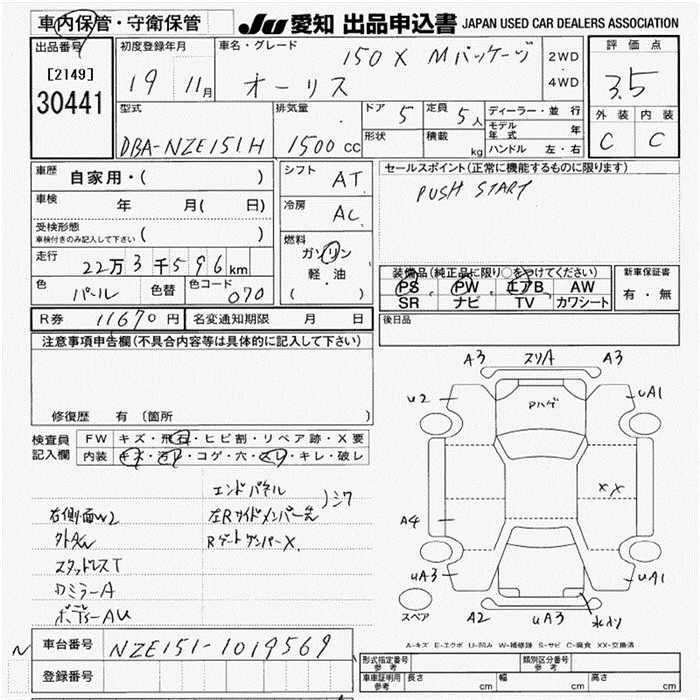 車内保管・守衛保管
JU 愛知 出品申込書 JAPAN USED CAR DEALERS ASSOCIATION
出品番号
[2149]
30441
初度登録年月
19年 11月
車名・グレード
150X Mパッケージ
オーリス
2WD
・
4WD
評価点
3.5
外装 内装
C C
型式
DBA-NZE151H
排気量
1500 cc
ドア 5
形状
定員 5人
積載 kg
ディーラー・並行
モデル年式 年
ハンドル 左・右
車歴 自家用・( )
車検 年 月( 日)
受検形態
車検付きのみ記入して下さい ( )
走行 22万3千596km
色 パール 色替 色コード 070
シフト AT
冷房 AC
燃料
ガソリン
軽・油
( ・ )
セールスポイント(正常に機能するものに限ります)
PUSH START
装備品(純正品に限り○をつけてください)
PS PW エアB AW
SR ナビ TV カワシート
新車保証書
有・無
R券 11670円 名変通知期限 月 日
後日品
注意事項申告欄(不具合内容等は具体的に記入して下さい)
修復歴 有 〔箇所 〕
検査員記入欄
FW キズ・飛石・ヒビ割・リペア跡・X要
内装 キズ・汚レ・コゲ・穴・スレ・キレ・破レ
エンドパネル
左Rサイドメンバー先 )シワ
RゲートダンパーX
右側面W2
外AW
スタッドレスT
ロミラーA
ボディーAU
A3 スリA A3
U2 Pハゲ UA1
XX
A4
UA3 UA1
スペア A2 UA3 水メリ
A-キズ E-エクボ U-凹み W-補修跡 S-サビ C-腐食 XX-交換済
車台番号 NZE151-1019569
N 登録番号
形式指定番号 参考 類別区分番号 参考
車庫証明用 参考 長さ cm 幅 cm 高さ cm